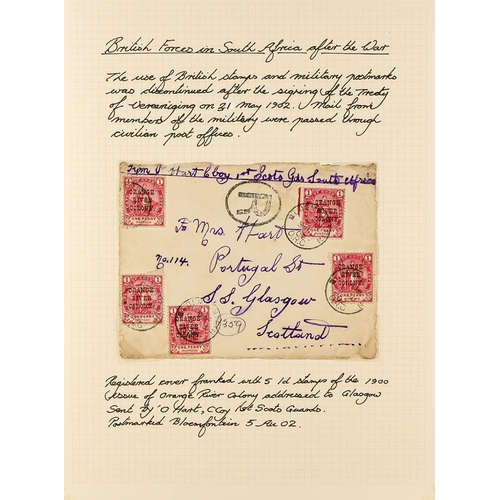 British Forces in South Africa after the War
The use of British stamps and military postmarks
was discontinued after the signing of the Treaty
of Vereeniging on 31 May 1902. Mail from
members of the military were passed through
civilian post offices.
From O Hart C Coy 1st Scots Gds South Africa
R
To Mrs Hart
No. 114.
Portugal St
S.S. Glasgow
Scotland
359
ORANGE
RIVER
COLONY
ONE PENNY
ORANGE
RIVER
COLONY
ORANGE
RIVER
COLONY
ORANGE
RIVER
COLONY
ORANGE
RIVER
COLONY
ONE PENNY
Registered cover franked with 5 1d stamps of the 1900
issue of Orange River Colony addressed to Glasgow
Sent by O Hart, C Coy 1st Scots Guards.
Postmarked Bloemfontein 5 Au 02.